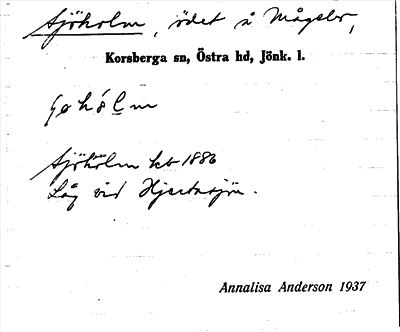 Sjöholm, ödet å Mågelbo,
Korsberga sn, Östra hd, Jönk. l.
Sjöholm kb 1886
Låg vid Hjertasjön.
Annalisa Anderson 1937